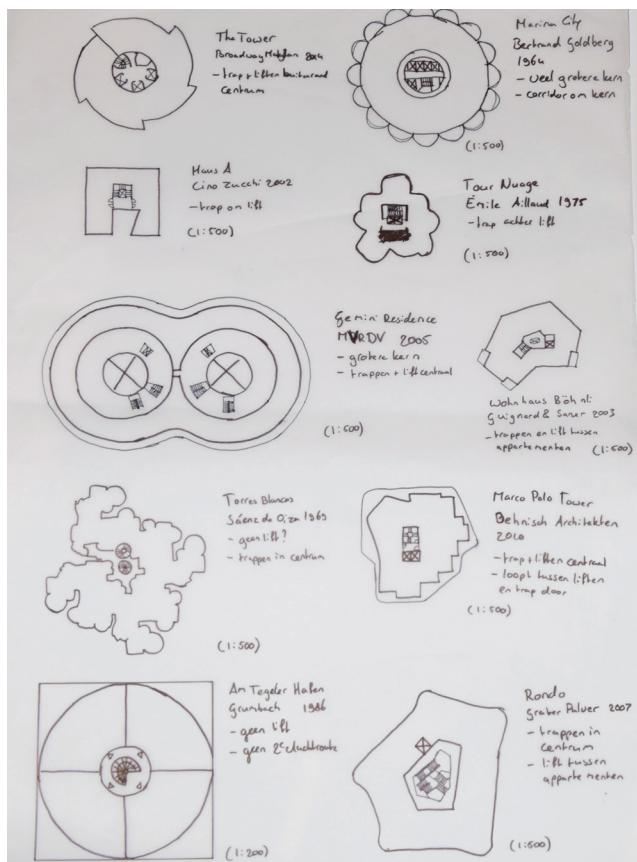 The Tower
Broadway Malyan 2014
- trap + liften
centrum
Marina City
Bertrand Goldberg
1964
- veel grotere kern
- corridor om kern
(1:500)
Haus A
Cino Zucchi 2002
- trap om lift
(1:500)
Tour Nuage
Émile Aillaud 1975
- trap achter lift
(1:500)
Gemini Residence
MVRDV 2005
- grotere kern
- trappen + lift centraal
(1:500)
Wohnhaus Böhnli
Guignard & Saner 2003
- trappen en lift tussen
appartementen (1:500)
Torres Blancas
Sáenz de Oiza 1969
- geen lift?
- trappen in centrum
(1:500)
Marco Polo Tower
Behnisch Architekten
2010
- trap + liften centraal
- loopt tussen liften
en trap door
(1:500)
Am Tegeler Hafen
Grumbach 1986
- geen lift
- geen 2e vluchtroute
(1:200)
Rondo
Graber Pulver 2007
- trappen in
centrum
- lift tussen
appartementen
(1:500)